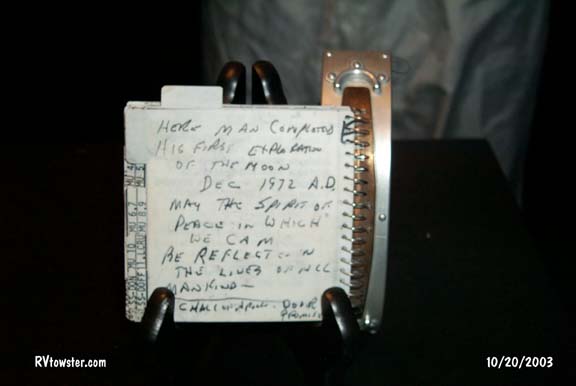 HERE MAN COMPLETED
HIS FIRST EXPLORATION
OF THE MOON
DEC 1972 A.D.
MAY THE SPIRIT OF
PEACE IN WHICH
WE CAM
BE REFLECTED IN
THE LIVES OF ALL
MANKIND—
DOOR
MU 6,7 MU 8,9
RVtowster.com
10/20/2003